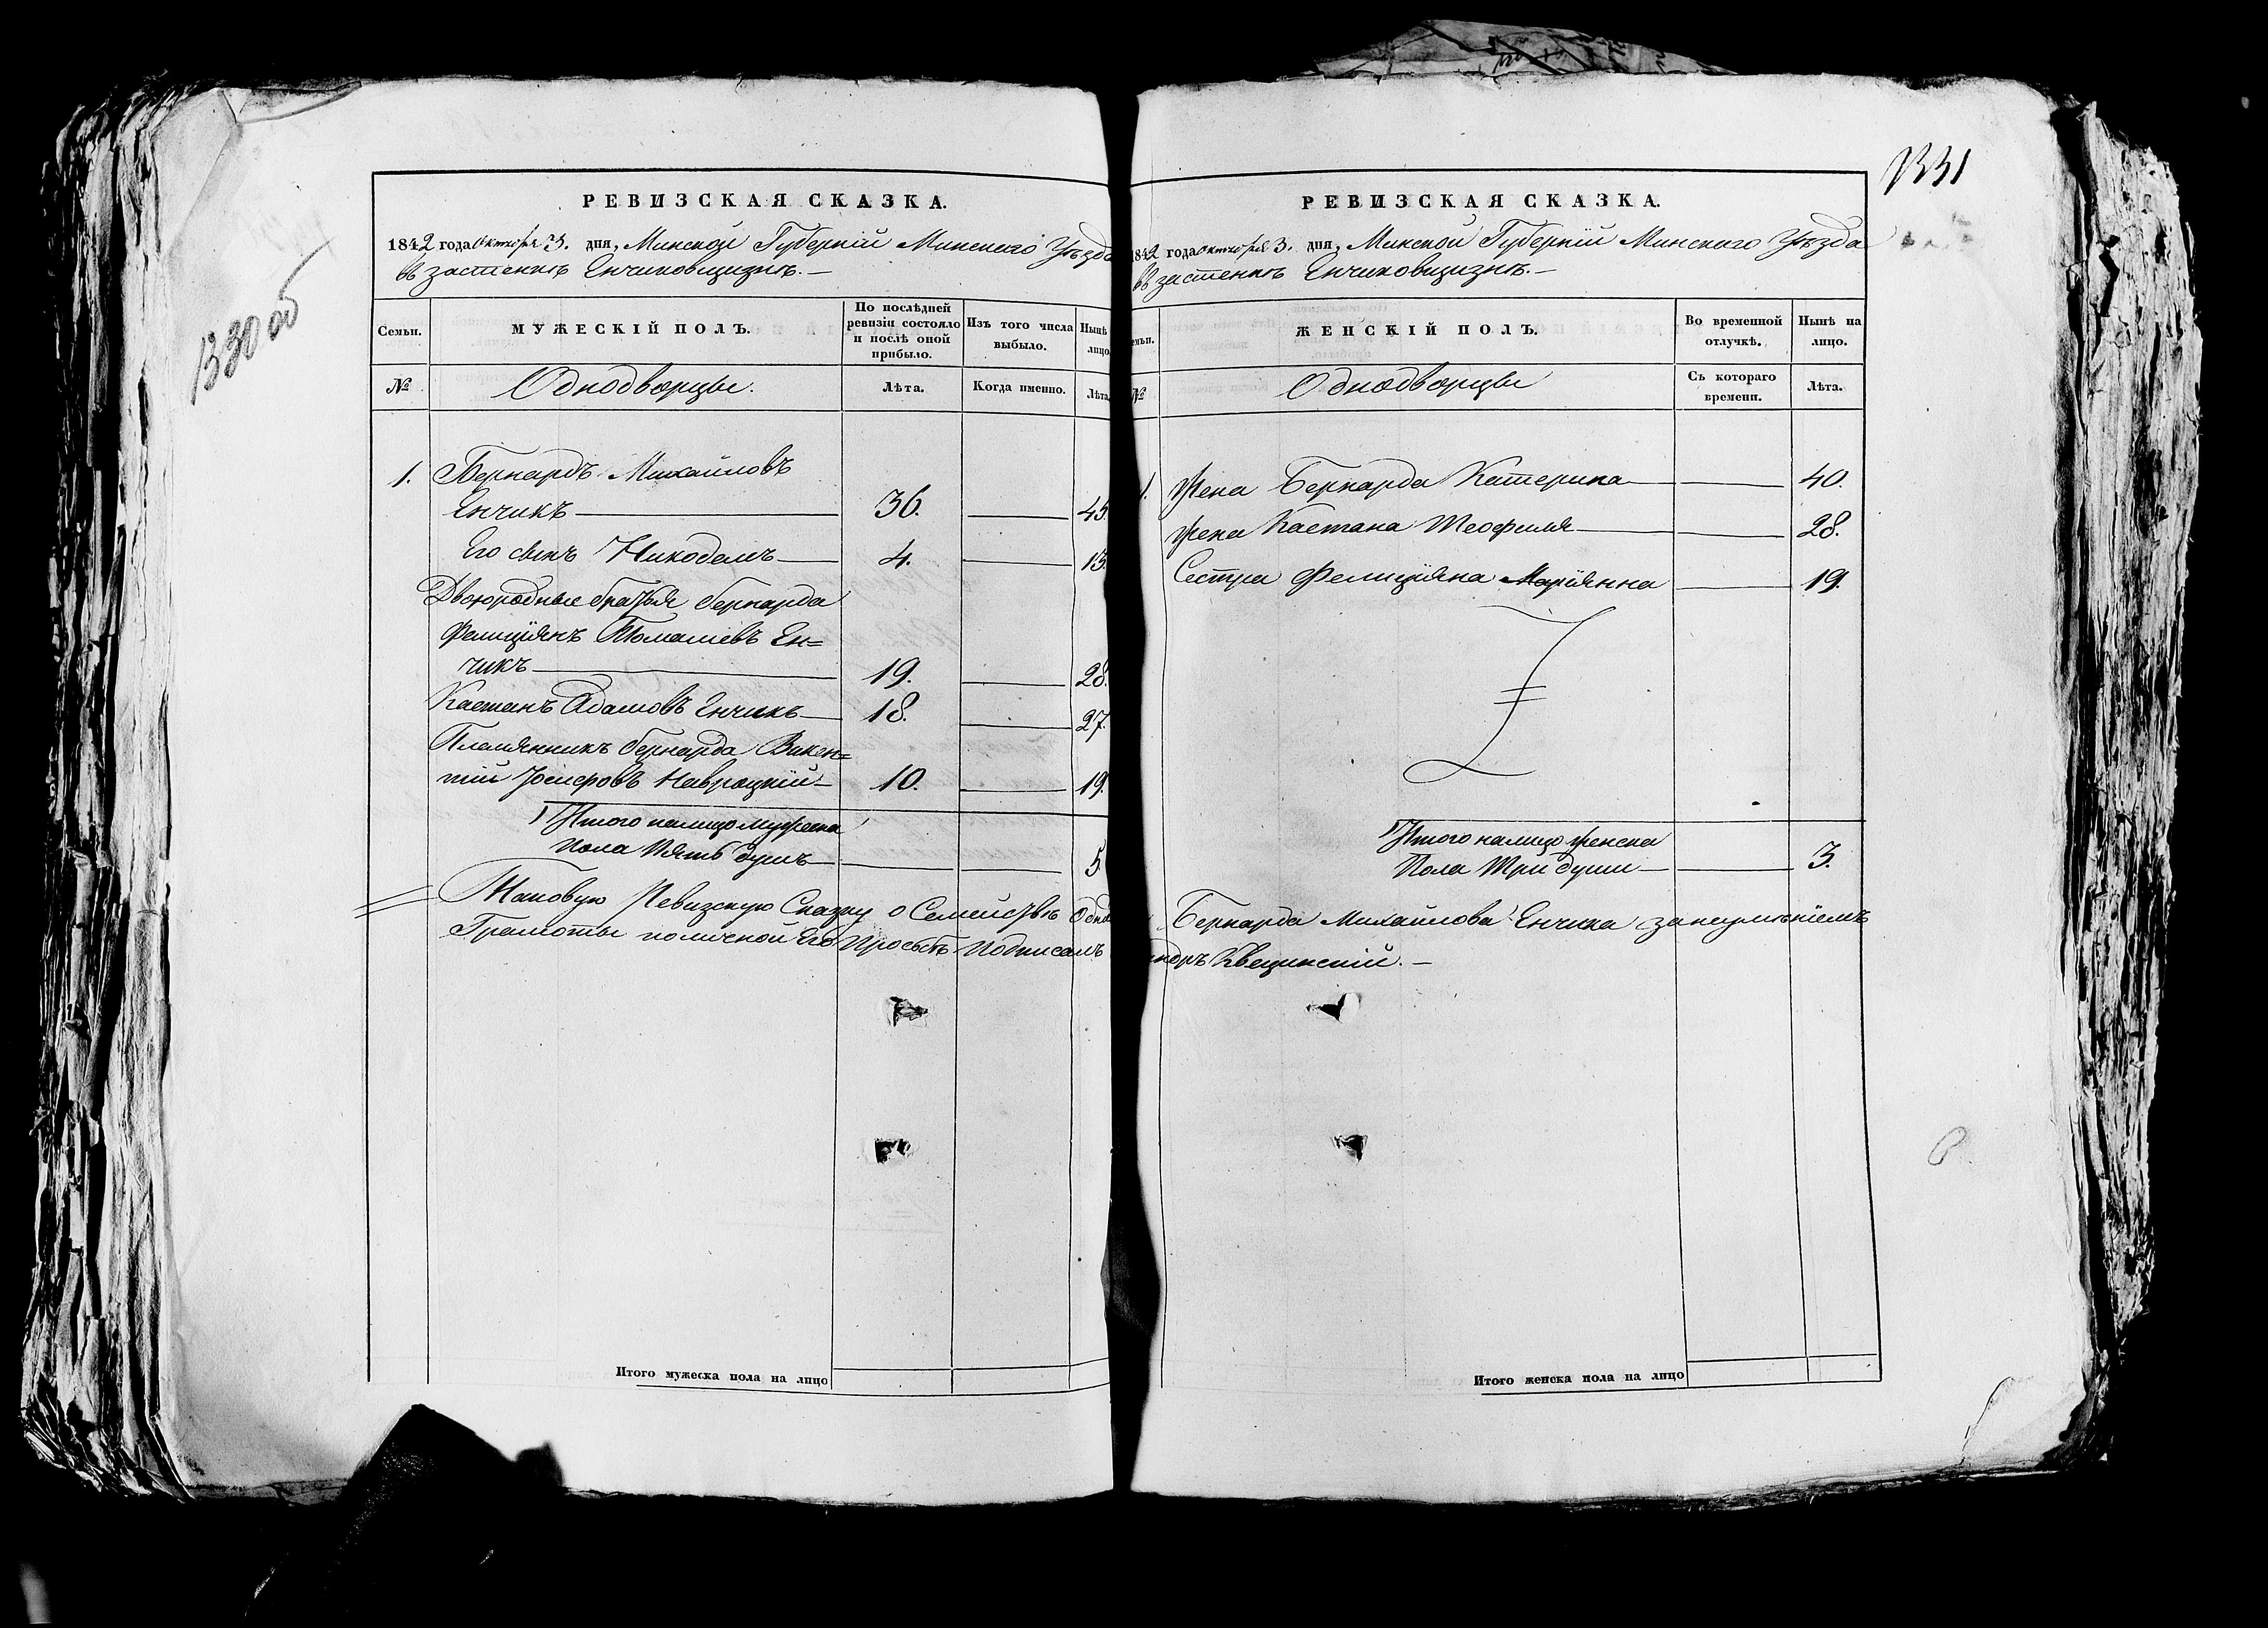 1330 об
РЕВИЗСКАЯ СКАЗКА.
1842 года Октября 3. дня, Минской Губерніи Минскаго Уѣзда
въ застенкѣ Енчиковщизнѣ.—
Семьи. МУЖЕСКІЙ ПОЛЪ. По послѣдней ревизіи состояло и послѣ оной прибыло. Изъ того числа выбыло. Нынѣ лицо
№ Однодворцы. Лѣта. Когда именно. Лѣта.
1. Бернардъ Михайловъ
Енчикъ— 36. — 45.
Его сынъ Никодемъ— 4. — 13.
Двоюродные братья Бернарда
Фелиціянъ Томашевъ Ен=
чикъ— 19. — 28.
Каетанъ Адамовъ Енчикъ— 18. — 27.
Племянникъ Бернарда Викен=
тій Іосифовъ Навроцкій— 10. — 19.
Итого налицо мужеска
пола пять душъ— — — 5
Таковую Ревизскую Сказку о Семействѣ Одно
Грамоты по личной Его Просьбѣ Подписалъ
Итого мужеска пола на лицо
1331
РЕВИЗСКАЯ СКАЗКА.
1842 года Октября 3. дня, Минской Губерніи Минскаго Уѣзда
въ застенкѣ Енчиковщизнѣ.—
емьи. ЖЕНСКІЙ ПОЛЪ. Во временной отлучкѣ. Нынѣ на лицо.
№ Однодворцы Съ котораго времени. Лѣта.
1. Жена Бернарда Катерина— — 40.
Жена Каетана Теофиля— — 28.
Сестра Фелиціяна Маріянна — 19.
Итого налицо женска
Пола Три души— — 3.
Бернарда Михайлова Енчика занеумѣніемъ
ндръ Квецинскій.—
Итого женска пола на лицо